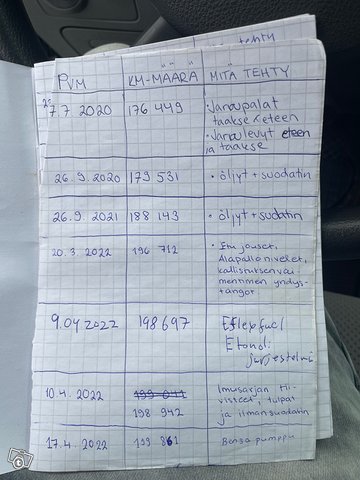 tehty
PVM KM-MÄÄRÄ MITÄ TEHTY
7.7.2020 176 449 • Jarrupalat
taakse & eteen
• Jarrulevyt eteen
ja taakse
26.9.2020 179 531 • öljyt + suodatin
26.9.2021 188 143 • öljyt + suodatin
20.3.2022 196 712 • Etu jouset,
Alapallonivelet,
kallistuksenvai-
mentimen yhdys-
tangot.
9.04.2022 198697 Eflexfuel
Etanoli
järjestelmä
10.4.2022 199 041 Imusarjan tii-
198 942 visteet, tulpat
ja ilmansuodatin
17.4.2022 199 861 Bensa pumppu